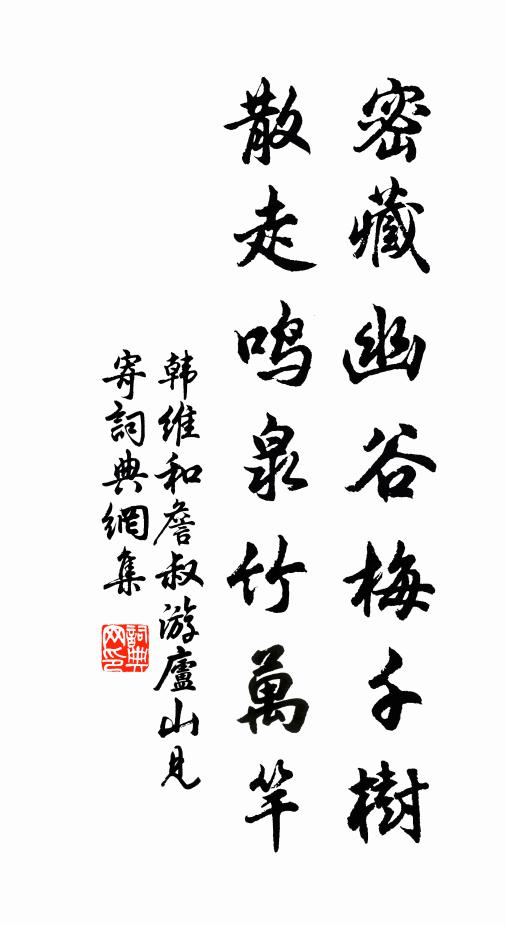 密藏幽谷梅千樹
散走鸣泉竹萬竿
韩維和詹叔游廬山見
寄詞典網集
詞典
网印